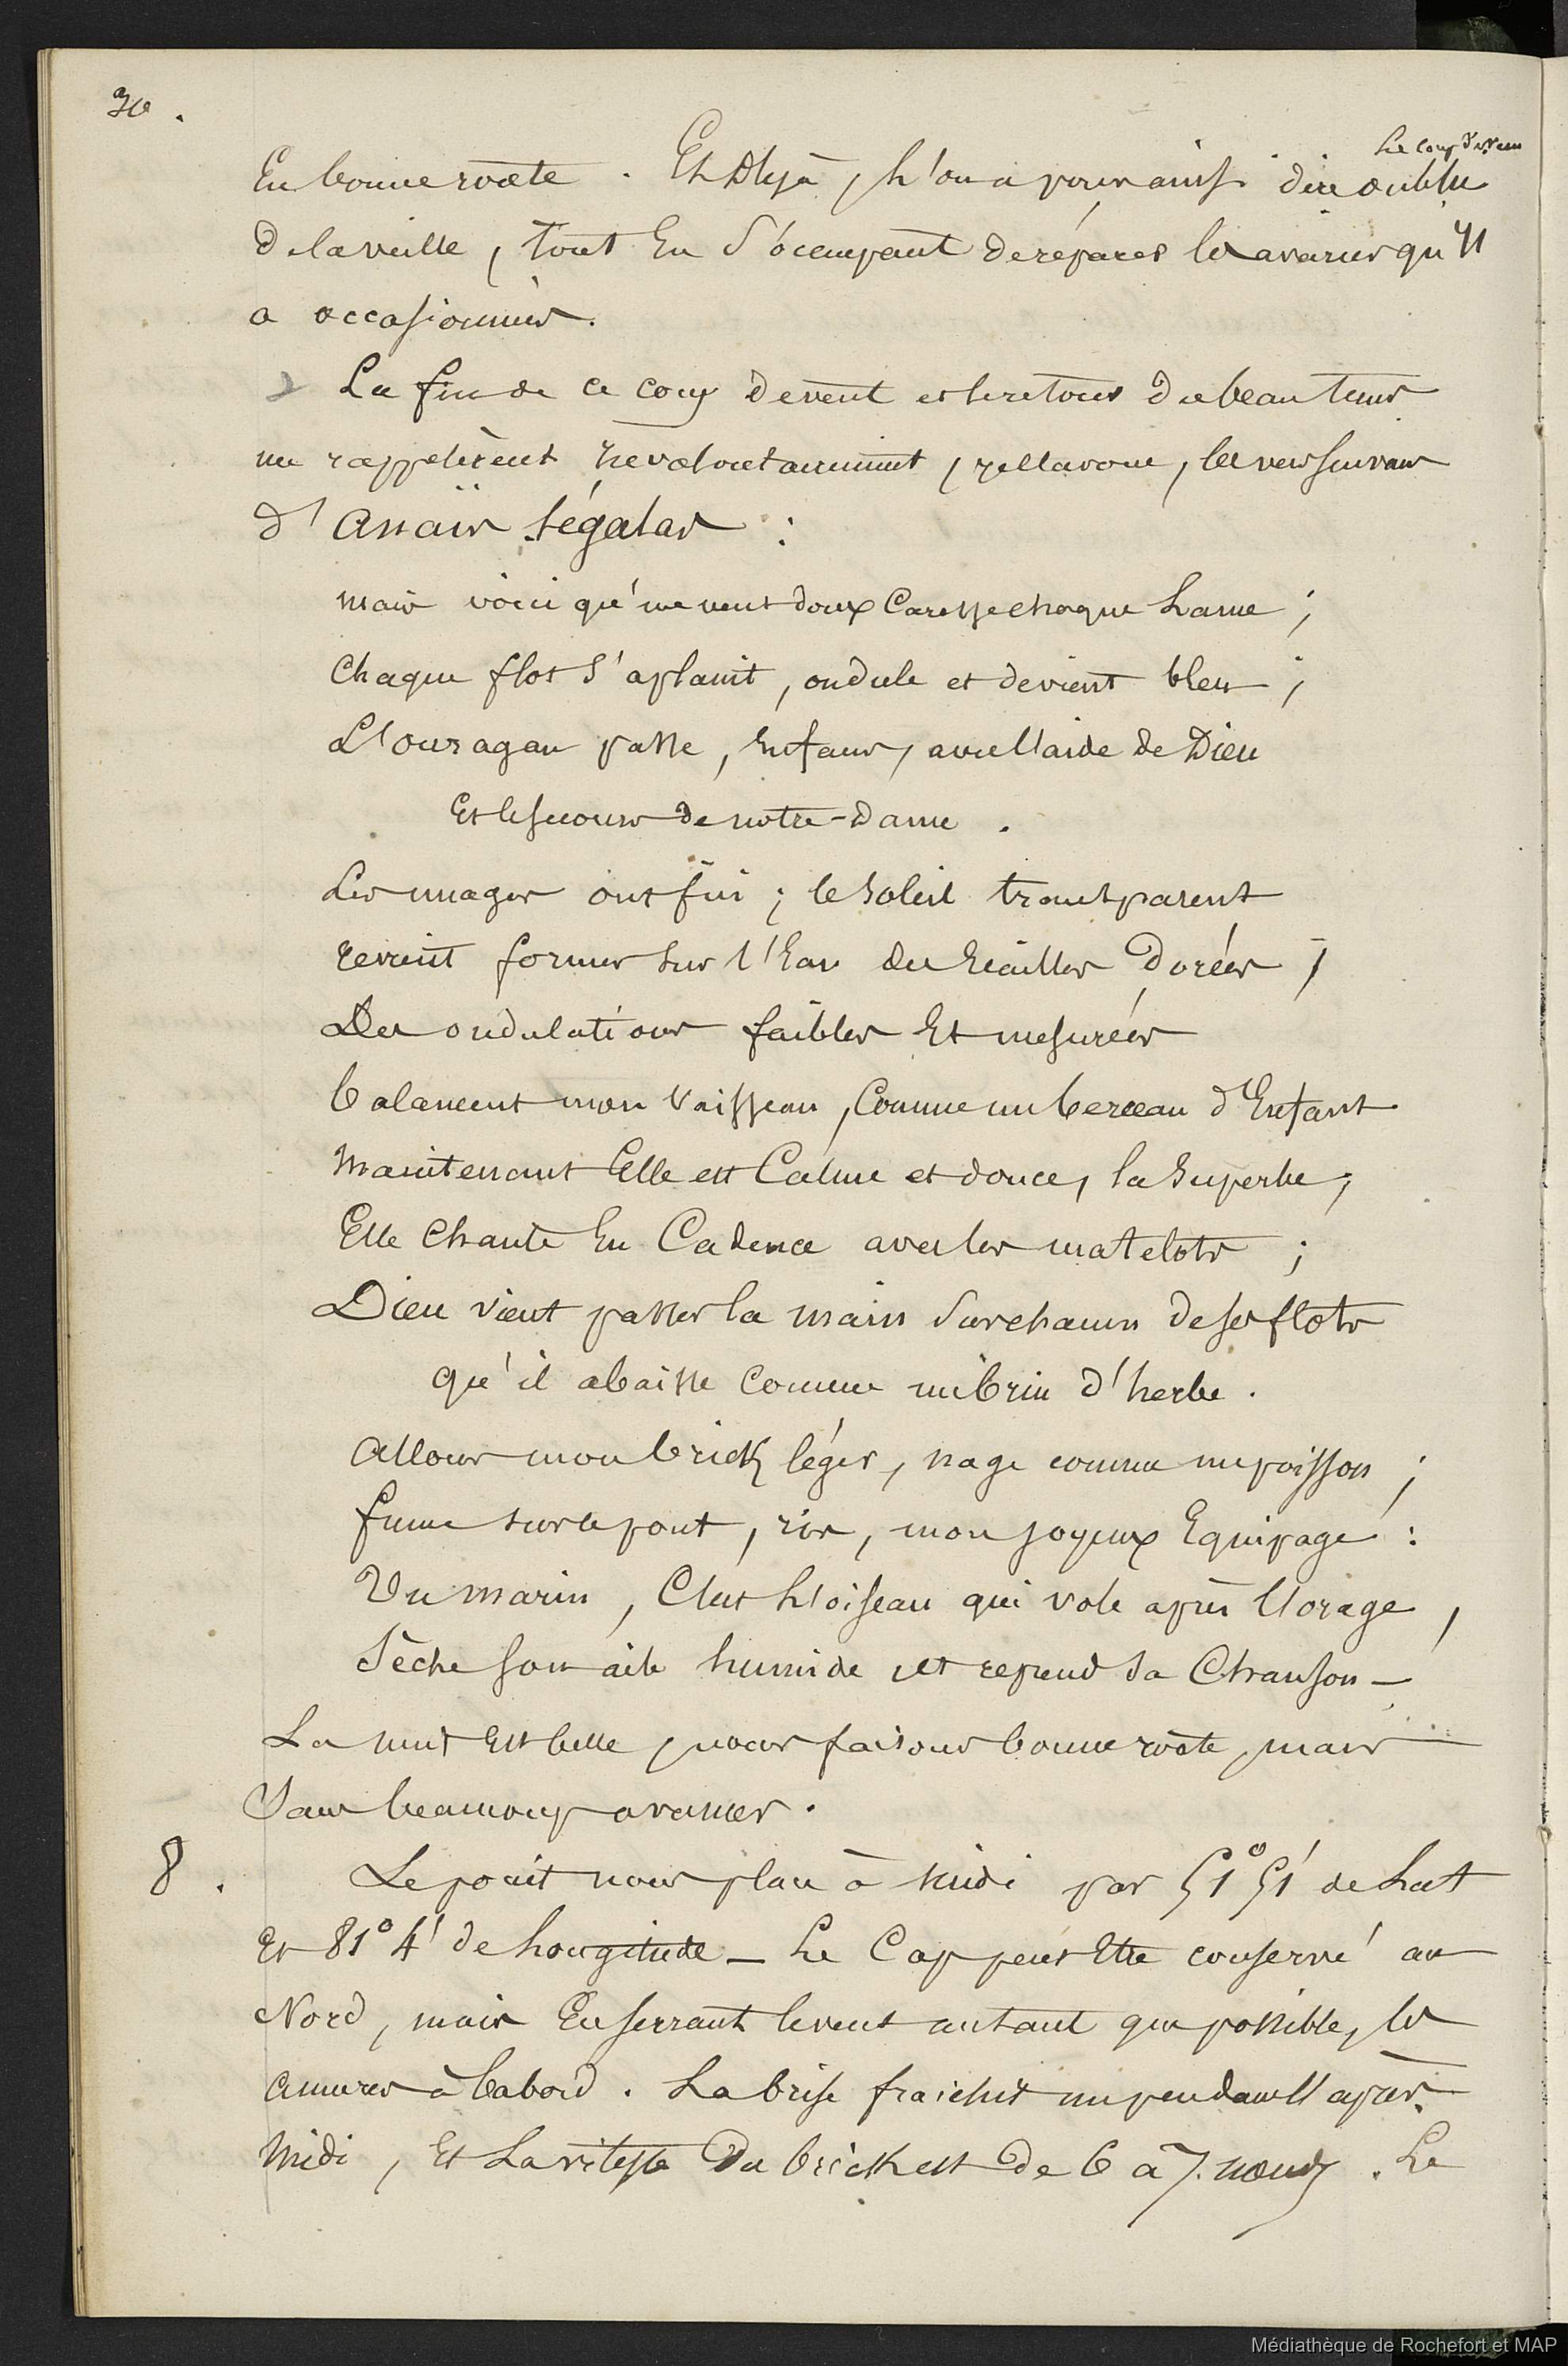 30.
le coup de vent
En bonne route. Et déjà, l'on a pour ainsi dire oublié
de la veille, tout En s'occupant de réparer les avaries qu'il
a occasionnées.
La fin de ce coup de vent et le retour du beau tems
me rappelèrent involontairement, je l'avoue, les vers suivans
d'Anaïs Ségalas :
Mais voici qu'un vent doux Caresse chaque Lame ;
Chaque flot s'aplanit, ondule et devient bleu ;
L'ouragan passe, Enfans, avec l'aide de Dieu
Et le secours de notre-Dame.
Les nuages ont fui ; le soleil transparent
revient former sur l'Eau des Ecailles Dorées ;
Des ondulations faibles Et mesurées
balancent mon Vaisseau, Comme un berceau d'Enfant
Maintenant Elle est Calme et douce, la superbe,
Elle Chante En Cadence avec les matelots ;
Dieu vient passer la main sur chacun de ses flots
qu'il abaisse comme un brin d'herbe.
Allons mon brick léger, nage comme un poisson ;
fume sur le pont, ris, mon joyeux Equipage :
Un marin, C'est l'oiseau qui vole après l'orage,
Sèche son aile humide, et reprend sa Chanson —
La nuit Est belle, nous faisons bonne route, mais
Sans beaucoup avancer.
8. Le point nous place à midi par 51° 51' de Lat
Et 81° 4' de Longitude — Le Cap peut Etre conservé au
Nord, mais En serrant le vent autant que possible, les
amures à babord. La brise fraichit un peu dans l'après
Midi, Et La vitesse Du brick est de 6 à 7 nœuds. Le
Médiathèque de Rochefort et MAP